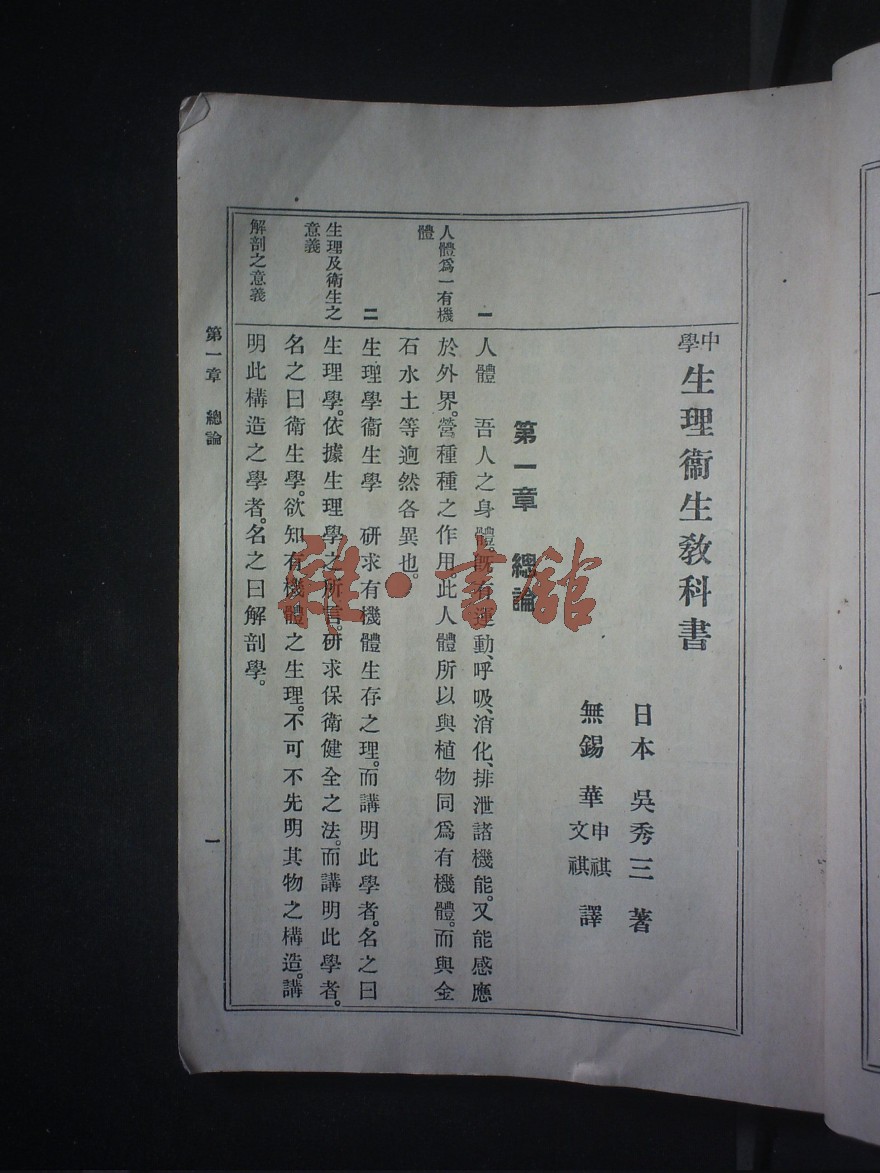 中學生理衞生教科書
日本 吳秀三 著
無錫 華申祺文祺 譯
第一章 總論
一
人體爲一有機
體
人體 吾人之身體。既有運動、呼吸、消化、排泄諸機能。又能感應
於外界。營種種之作用。此人體所以與植物同爲有機體。而與金
石水土等逈然各異也。
二
生理及衛生之
意義
生理學衞生學 研求有機體生存之理。而講明此學者。名之曰
生理學。依據生理學之所言。研求保衛健全之法。而講明此學者。
名之曰衛生學。欲知有機體之生理。不可不先明其物之構造。講
解剖之意義
明此構造之學者。名之曰解剖學。
第一章 總論
一
雜·書館